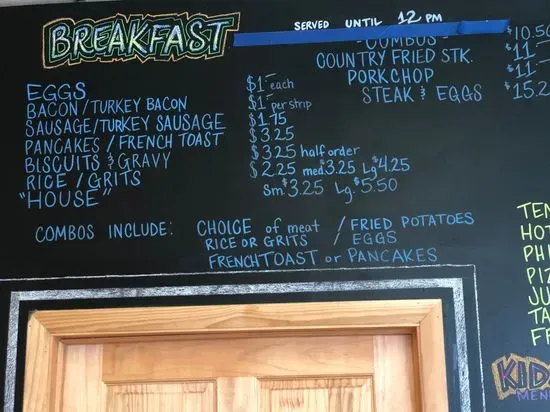 BREAKFAST
SERVED UNTIL 12 PM
- COMBOS - $10.50
COUNTRY FRIED STK. $11
PORKCHOP $11
STEAK & EGGS $15.2
EGGS $1 each
BACON/TURKEY BACON $1 per strip
SAUSAGE/TURKEY SAUSAGE $1.75
PANCAKES/FRENCH TOAST $3.25
BISCUITS & GRAVY $3.25 half order
RICE/GRITS $2.25 med $3.25 Lg $4.25
"HOUSE" Sm $3.25 Lg. $5.50
COMBOS INCLUDE: CHOICE of meat / FRIED POTATOES
RICE OR GRITS / EGGS
FRENCH TOAST or PANCAKES
TEN
HOT
PHI
PIZ
JU
TA
FR
KID
MEN